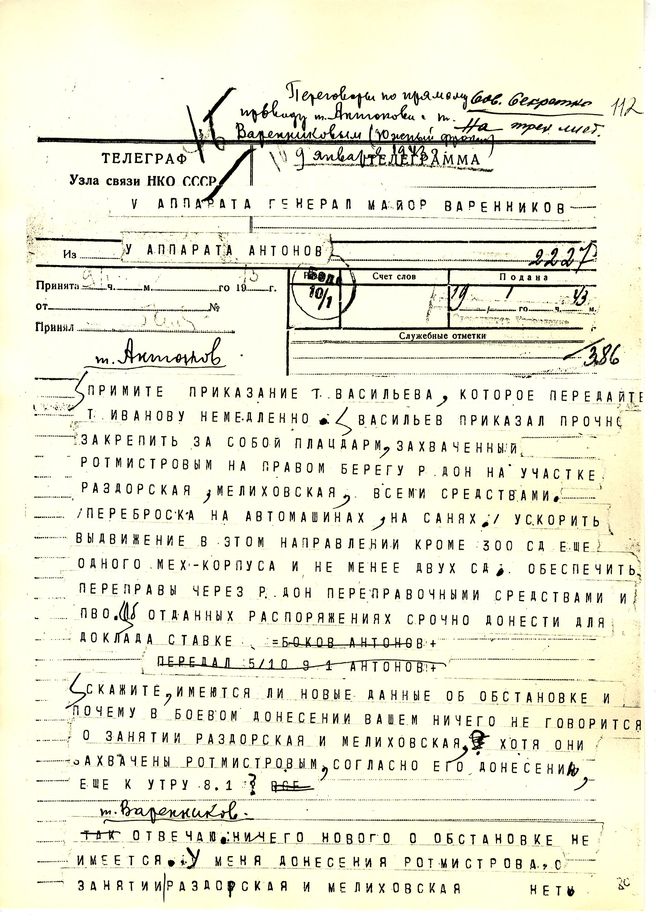 Переговоры по прямому Сов. Секретно 112
проводу т. Антонова с т. На трех лист.
Варенниковым (Южный фронт)
9 января 1943
ТЕЛЕГРАФ ТЕЛЕГРАММА
Узла связи НКО СССР
У АППАРАТА ГЕНЕРАЛ МАЙОР ВАРЕННИКОВ
Из У АППАРАТА АНТОНОВ 2227
Принята ч. м. го 19 г. Счет слов Подана
10/1 19 1 го 43 ч. м.
от №
Принял Служебные отметки
т. Антонов 386
ПРИМИТЕ ПРИКАЗАНИЕ Т. ВАСИЛЬЕВА, КОТОРОЕ ПЕРЕДАЙТЕ
Т. ИВАНОВУ НЕМЕДЛЕННО. ВАСИЛЬЕВ ПРИКАЗАЛ ПРОЧНО
ЗАКРЕПИТЬ ЗА СОБОЙ ПЛАЦДАРМ, ЗАХВАЧЕННЫЙ
РОТМИСТРОВЫМ НА ПРАВОМ БЕРЕГУ Р. ДОН НА УЧАСТКЕ
РАЗДОРСКАЯ, МЕЛИХОВСКАЯ, ВСЕМИ СРЕДСТВАМИ.
/ПЕРЕБРОСКА НА АВТОМАШИНАХ, НА САНЯХ./ УСКОРИТЬ
ВЫДВИЖЕНИЕ В ЭТОМ НАПРАВЛЕНИИ КРОМЕ 300 СД ЕЩЕ
ОДНОГО МЕХ-КОРПУСА И НЕ МЕНЕЕ ДВУХ СД. ОБЕСПЕЧИТЬ
ПЕРЕПРАВЫ ЧЕРЕЗ Р. ДОН ПЕРЕПРАВОЧНЫМИ СРЕДСТВАМИ И
ПВО. Об ОТДАННЫХ РАСПОРЯЖЕНИЯХ СРОЧНО ДОНЕСТИ ДЛЯ
ДОКЛАДА СТАВКЕ =БОКОВ АНТОНОВ+
ПЕРЕДАЛ 5/10 9 1 АНТОНОВ+
СКАЖИТЕ, ИМЕЮТСЯ ЛИ НОВЫЕ ДАННЫЕ ОБ ОБСТАНОВКЕ И
ПОЧЕМУ В БОЕВОМ ДОНЕСЕНИИ ВАШЕМ НИЧЕГО НЕ ГОВОРИТСЯ
О ЗАНЯТИИ РАЗДОРСКАЯ И МЕЛИХОВСКАЯ, ХОТЯ ОНИ
ЗАХВАЧЕНЫ РОТМИСТРОВЫМ, СОГЛАСНО ЕГО ДОНЕСЕНИЮ,
ЕЩЕ К УТРУ 8.1? ВСЕ
т. Варенников.
ТАК ОТВЕЧАЮ: НИЧЕГО НОВОГО О ОБСТАНОВКЕ НЕ
ИМЕЕТСЯ. У МЕНЯ ДОНЕСЕНИЯ РОТМИСТРОВА, О
ЗАНЯТИИ РАЗДОРСКАЯ И МЕЛИХОВСКАЯ НЕТ